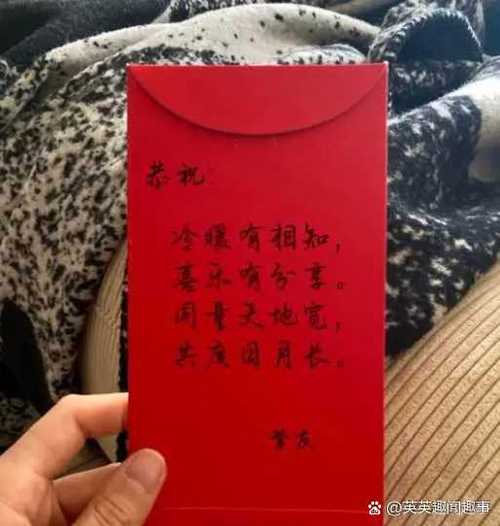 恭祝:
冷暖有相知,
喜乐有分享。
同量天地宽,
共度日月长。
挚友
@英英趣闻趣事